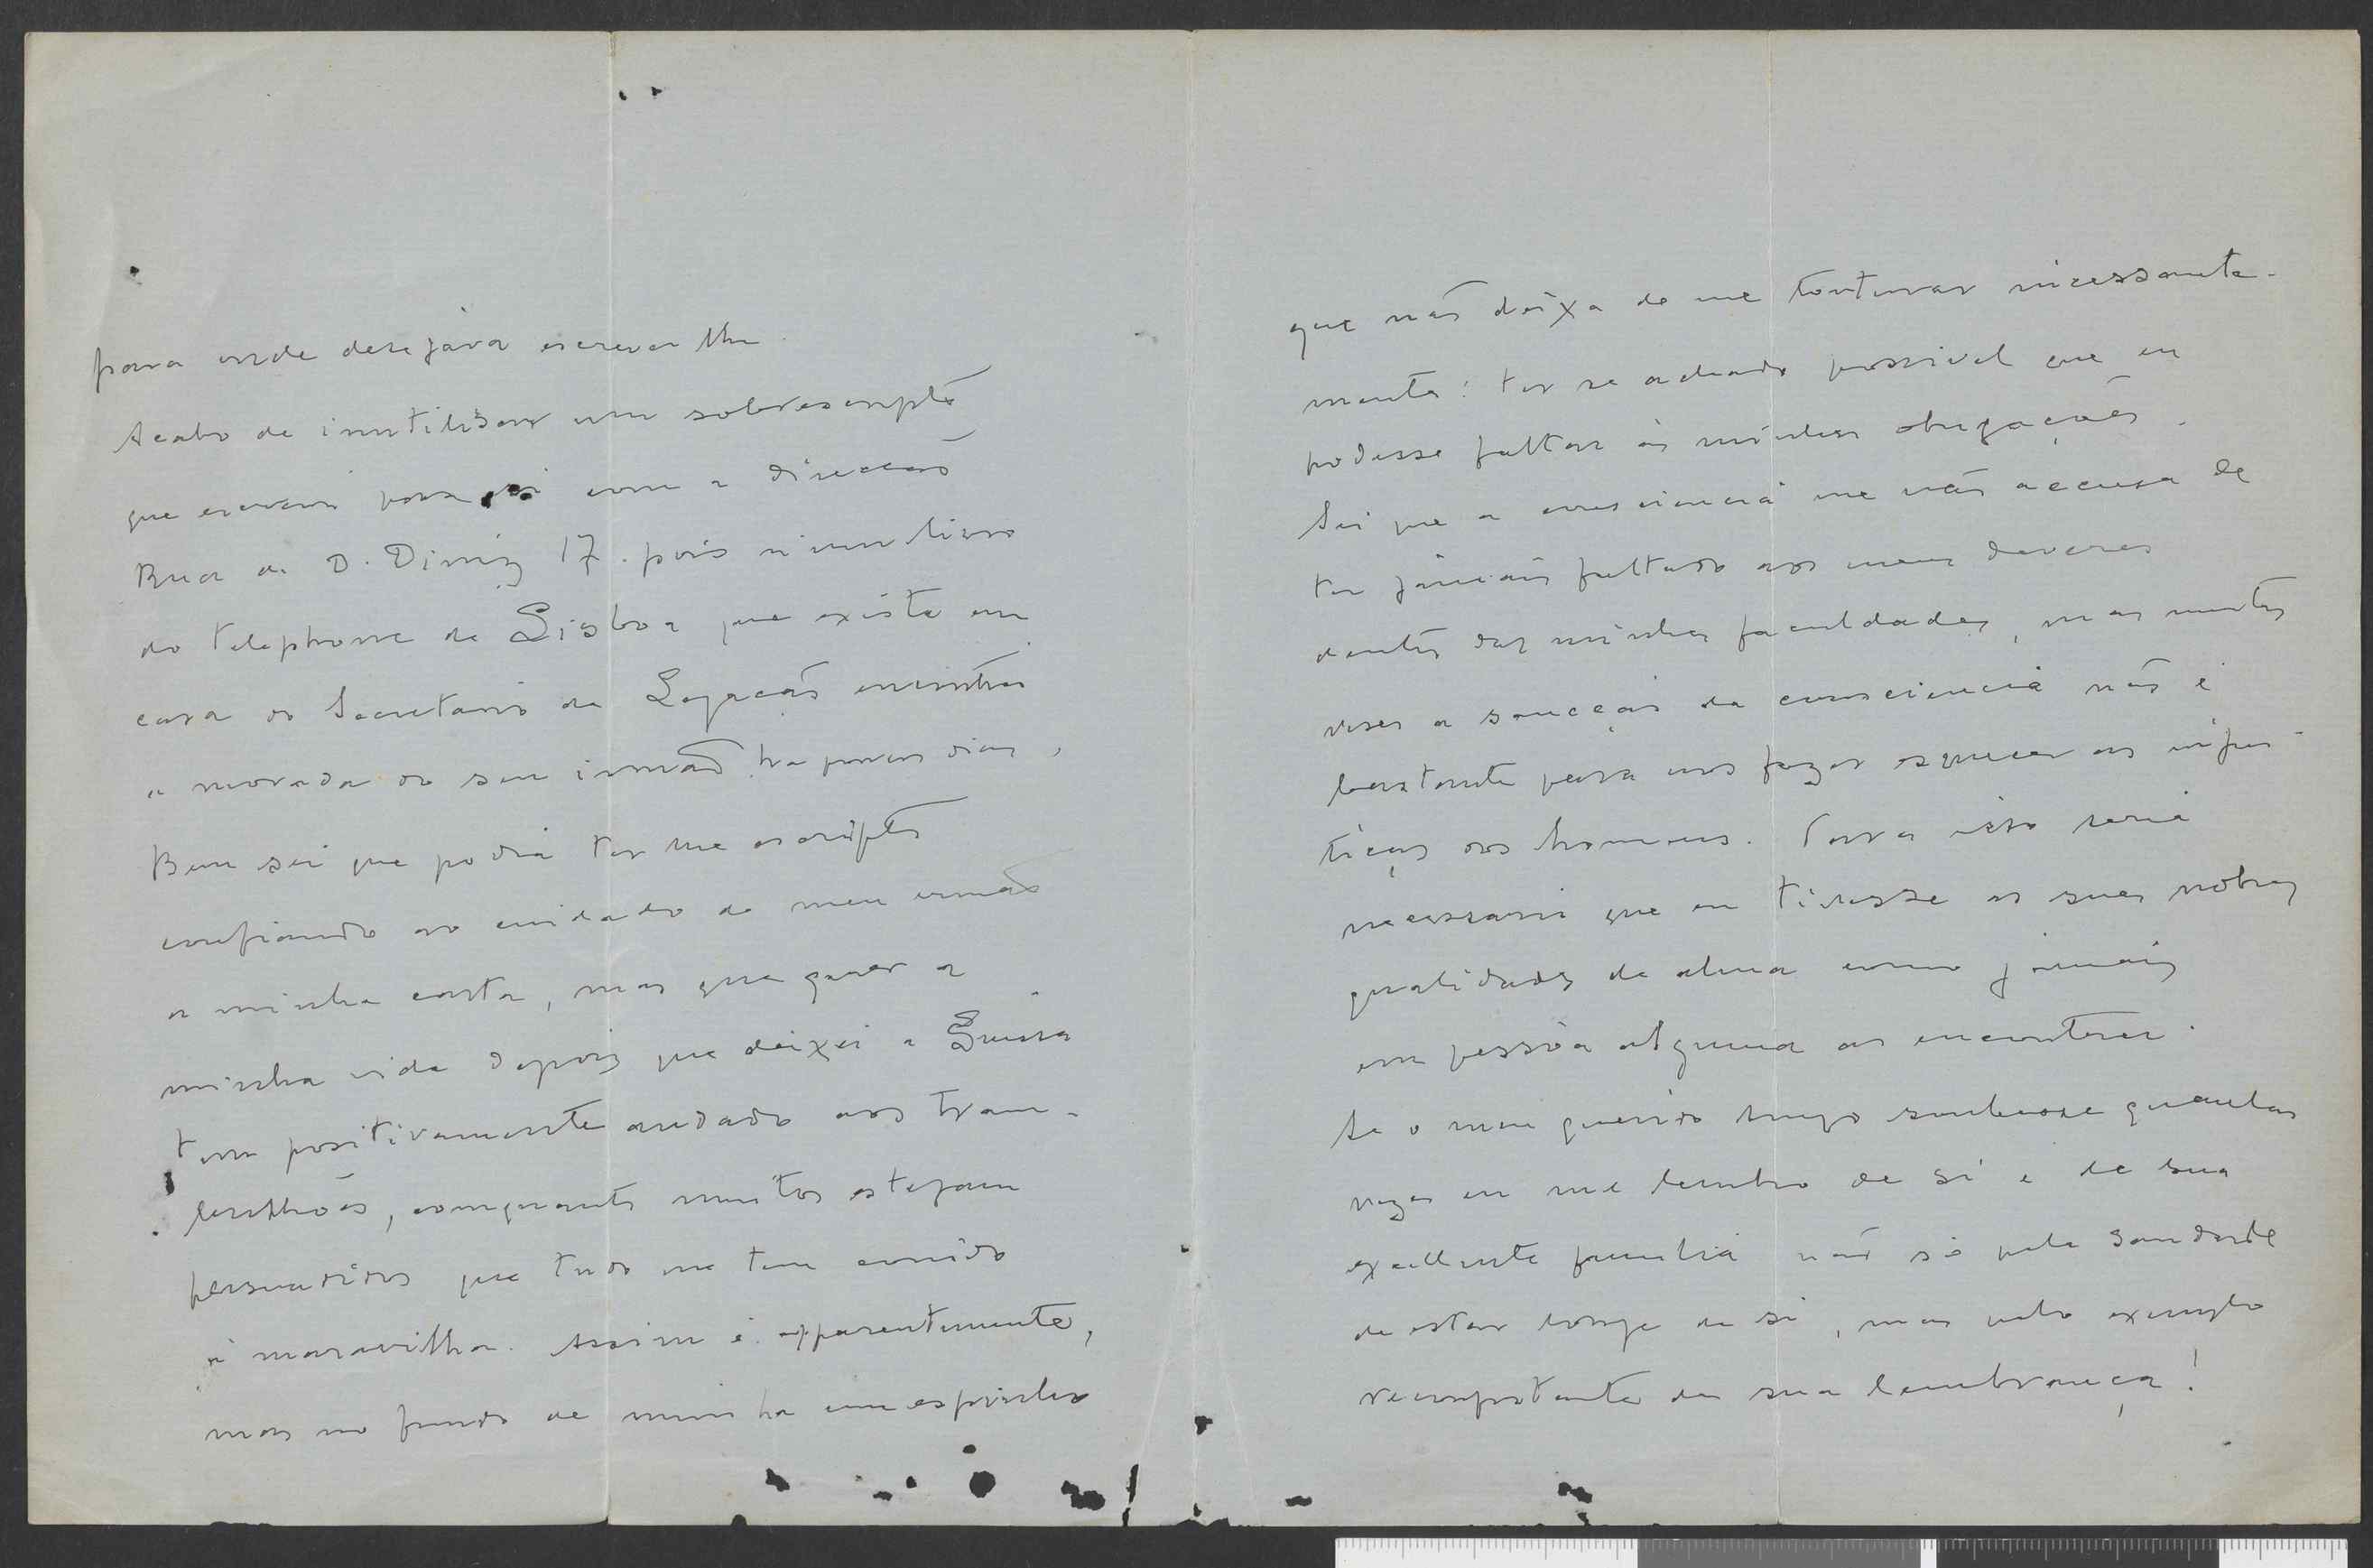 para onde desejava escrever lhe.
Acabo de inutilisar um sobrescripto
que escrevi para si com a direccão
Rua de D. Diniz 17. pois n'um livro
do telephone de Lisboa que existe em
casa do Secretario da Legacão encontrei
a morada do seu irmão ha poucos dias.
Bem sei que podia ter lhe escripto
confiando ao cuidado do meu irmão
a minha carta, mas que quer a
minha vida depois que deixei a Suissa
tem positivamente andado aos tram-
bulhões, comquanto muitos estejam
persuadidos que tudo me tem corrido
á maravilha. Assim é apparentemente,
mas no fundo de mim ha um espinho
que não deixa de me torturar incessante-
mente: ter se achado possivel que eu
podesse faltar ás minhas obrigações.
Sei que a consciencia me não accusa de
ter jámais faltado aos meus deveres
dentro das minhas faculdades, mas muitas
vezes a sancção da consciencia não é
bastante para nos fazer esquecer as injus-
tiças dos homens. Para isso seria
necessario que eu tivesse as suas nobres
qualidades de alma como jámais
em pessôa alguma as encontrei.
Se o meu querido Amigo soubesse quantas
vezes eu me lembro de si e de sua
excellente familia não só pela saudade
de estar longe de si, mas pelo exemplo
da sua lembrança!